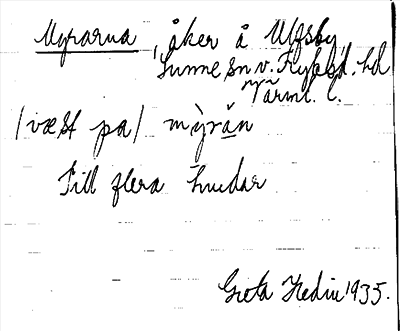 Myrarna, åker å Ulfsby,
Sunne sn v. Fryksd. hd
Värml. l.
/væst pa/ mỳrän
Till flera hudar
Greta Hedin 1935.